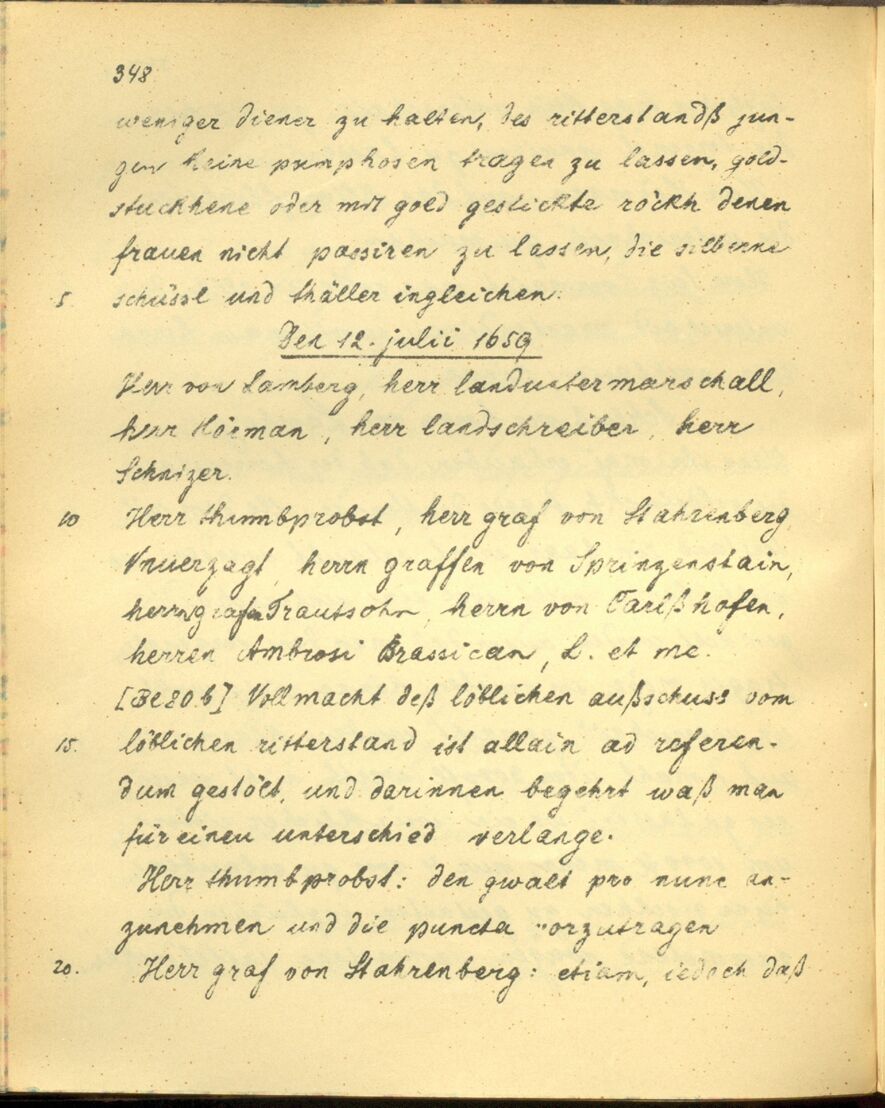 348
weniger diener zu halten, des ritterstandß jun-
gen keine pumphosen tragen zu lassen, gold-
stuckhene oder mit gold gestickte röckh denen
frauen nicht passiren zu lassen, die silberne
5. schüssl und thäller ingleichen.
Den 12. julii 1659
Herr von Lamberg, herr landuntermarschall,
herr landschreiber, herr
Schnizer.
10 Herr thumbprobst, herr graf von Stahrenberg
Vnuerzagt, herrn graffen von Sprinzenstain,
herrn grafen Trautsohn, herrn von
herren Ambrosi Brassican, L. et me.
Vollmacht deß löblichen außschuss vom
15. löblichen ritterstand ist allain ad referen-
dum gestölt, und darinnen begehrt waß man
für einen unterschied verlange.
Herr thumbprobst: den gwalt pro nunc an-
zunehmen und die puncta vorzutragen
20. Herr graf von Stahrenberg: etiam, iedoch daß